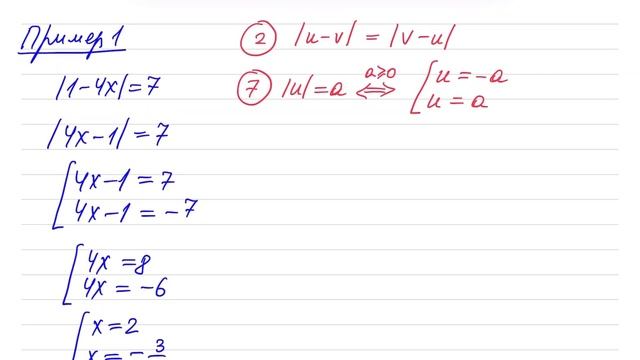 Пример 1
|1-4x|=7
|4x-1|=7
[4x-1=7
4x-1=-7
[4x=8
4x=-6
[x=2
x=-3
② |u-v|=|v-u|
⑦ |u|=a a≥0 ⟺ [u=-a
u=a